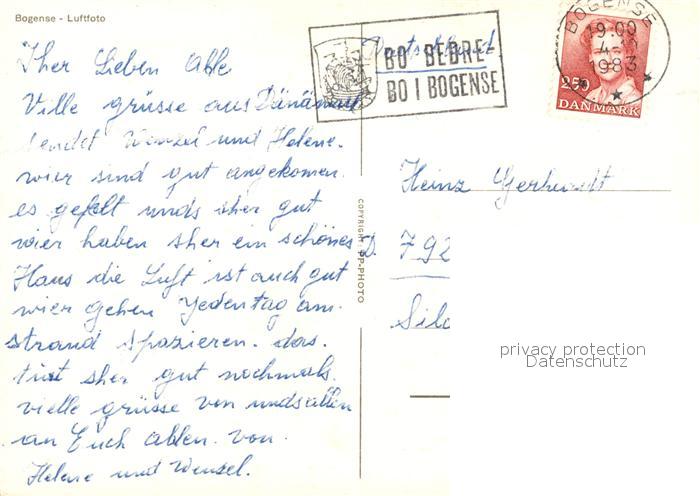 Bogense - Luftfoto
Iher Lieben Alle
Ville grüsse aus Dänämark
sendet Wenzel und Helene.
wier sind gut angekomen.
es gefelt unds sher gut
wier haben sher ein schönes
Haus die Luft ist auch gut
wier gehen Jedentag am
strand Spazieren. das.
tut sher gut nochmals.
vielle grüsse von unds allen
an Euch allen. von.
Helene und Wenzel.
COPYRIGHT: PP-PHOTO
Deutschland
BO BEDRE-
BO I BOGENSE
BOGENSE
19.00
1983
250
DANMARK
Heinz
D. 792
privacy protection
Datenschutz